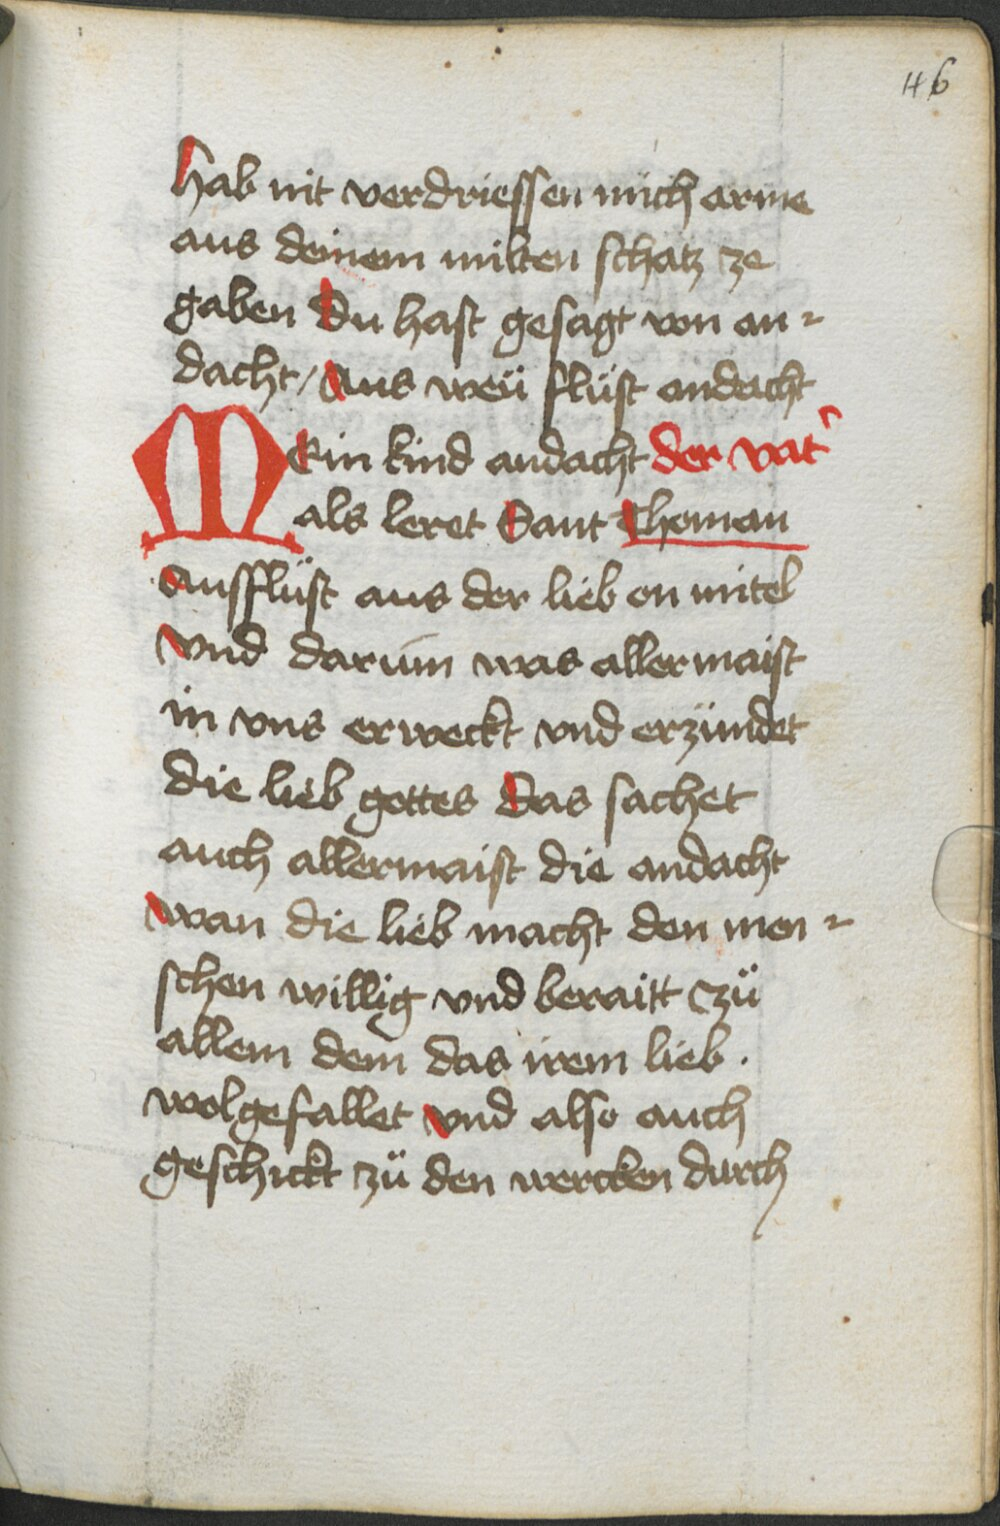 46
hab nit verdriessen mich arme
aus deinem milten schatz ze
gaben Du hast gesagt von an-
dacht / Aus weü flüst andacht
MEin kind andacht der vat'
als leret Sant Thoman
Ausflüst aus der lieb on mitel
Vnd darum was allermaist
in vns erweckt vnd erzündet
die lieb gottes Das sachet
auch allermaist die andacht
Wan die lieb macht den men-
schen willig vnd beraitt zü
allem dem das irem lieb .
wolgefallet Vnd also auch
geschickt zü den wercken durch